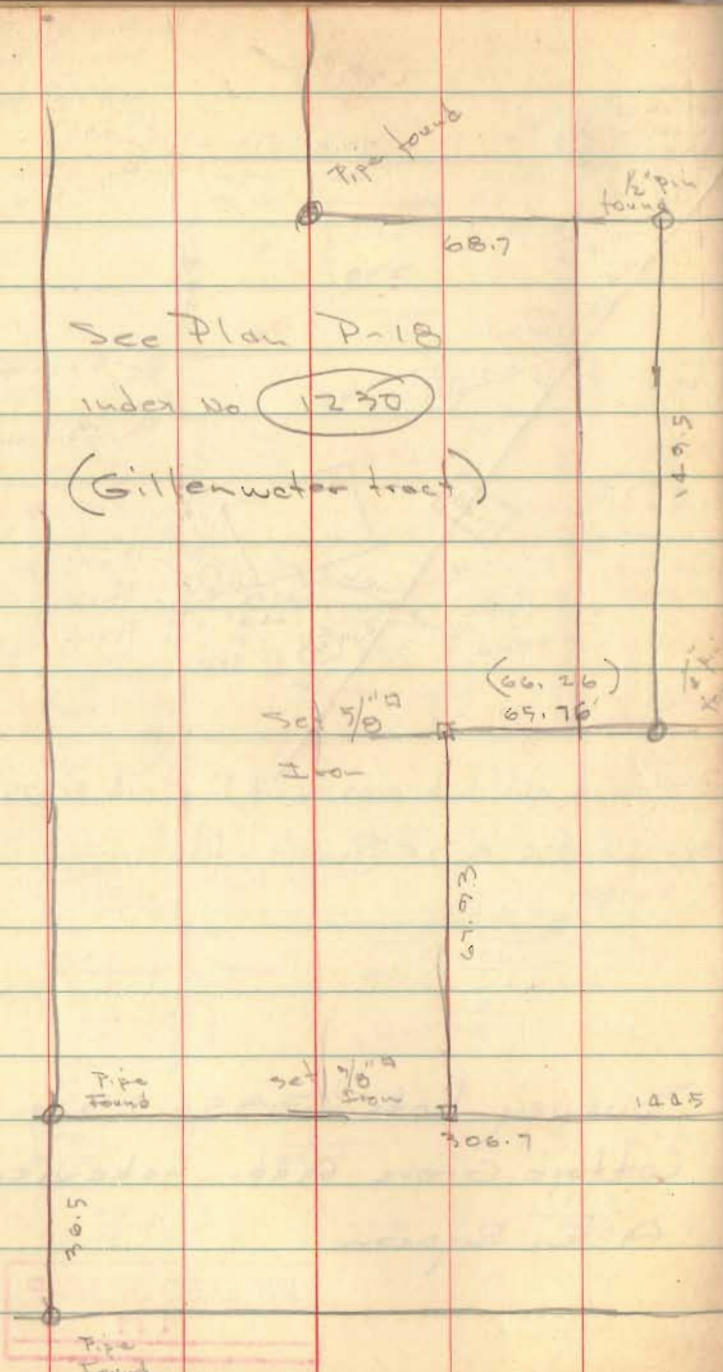 Pipe found
1/2" pin
found
68.7
See Plan P-18
Index No 1230
(Gillenwater tract)
149.5
(66.26)
65.76
Set 5/8"
Iron
67.93
Pipe
Found
set 5/8"
Iron
144.5
306.7
36.5
Pipe
Found